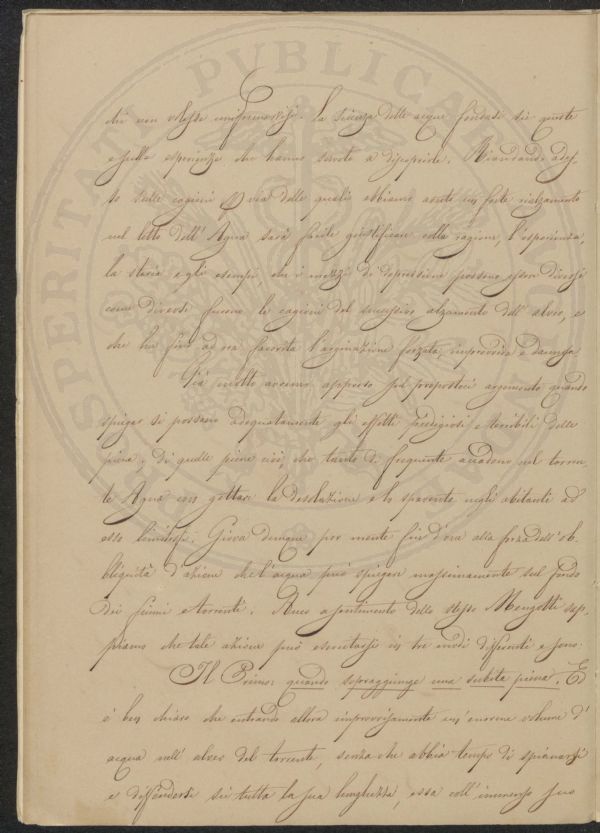 chè non volesse uniformarsi. La scienza delle acque fondasi su queste
e sulle esperienze che hanno servito a discoprirle. Riandando ades-
so sulle cagioni per via delle quali abbiamo avuto un forte rialzamento
nel letto dell' Agna sarà facile giustificare colla ragione, l'esperienza,
la storia e gli esempi, che i mezzi di depressione possono essere diversi
come diversi furono le cagioni del successivo alzamento dell' alveo, e
che ha fino ad ora favorita l'arginazione forzata, improvvida e dannosa.
Già molto avremo appreso sul propostoci argomento quando
spiegar si possano adequatamente gli effetti prodigiosi e terribili delle
piene; di quelle piene cioè, che tanto di frequente accadono nel torren-
te Agna con gettare la desolazione e lo spavento negli abitanti ad
esso limitrofi. Giova dunque por mente fin d'ora alla forza dell' ob-
bliquità d'azione che l'acqua può spiegare massimamente sul fondo
dei fiumi e torrenti. Anco a sentimento dello stesso Mengotti sap-
piamo che tale azione può esercitarsi in tre modi differenti e sono:
Il Primo: quando sopraggiunge una subita piena. Ed
è ben chiaro che entrando allora improvvisamente un' enorme volume d'
acqua nell' alveo del torrente, senza che abbia tempo di spianarsi
e diffondersi su tutta la sua lunghezza, essa coll' immenso suo
PROSPERITATI PVBLICAE